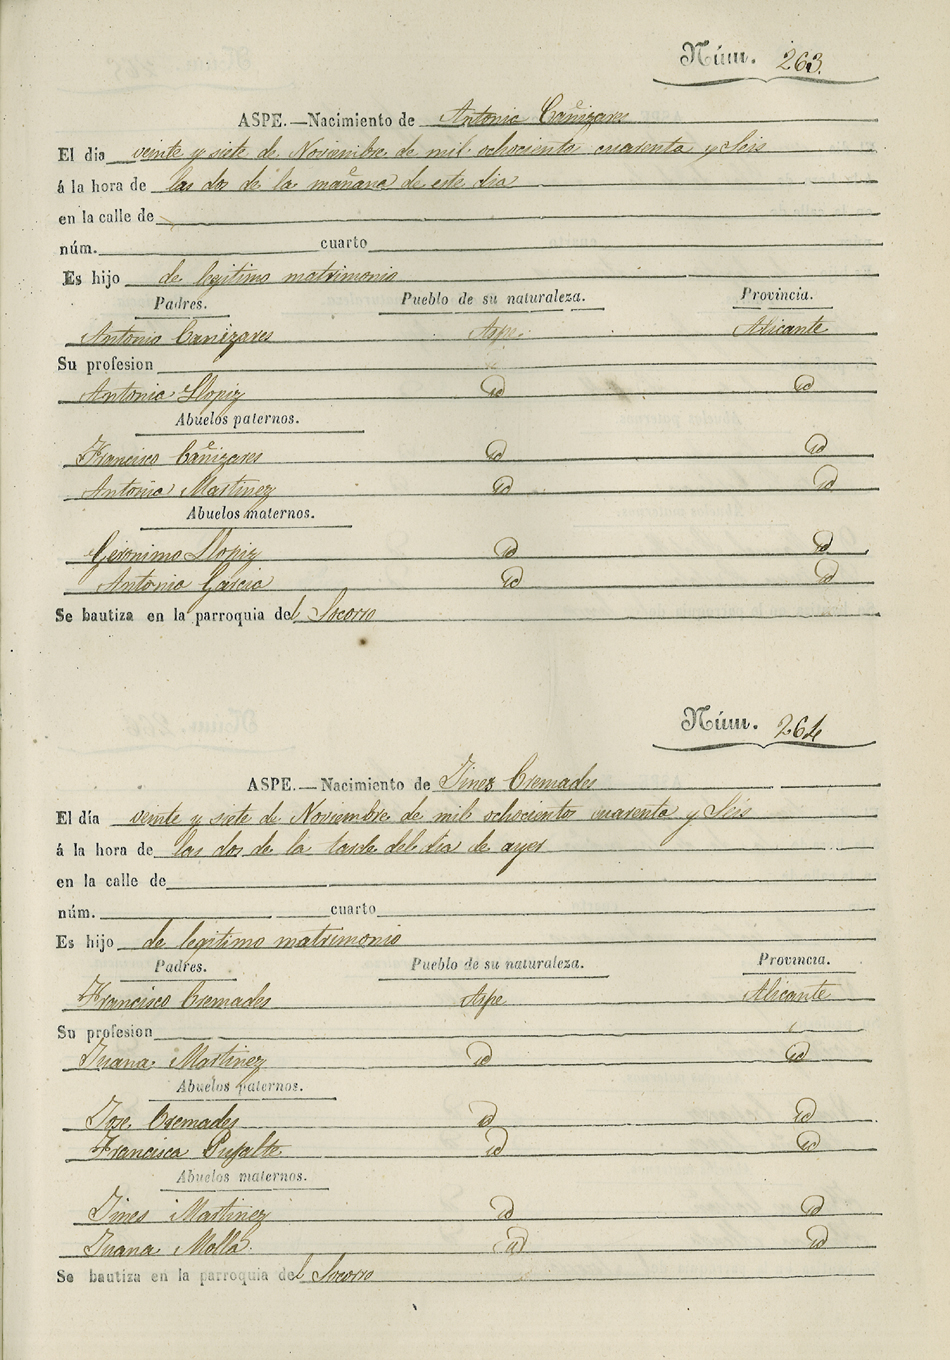 Núm. 263.
ASPE.—Nacimiento de Antonio Cañizares
El dia veinte y siete de Noviembre de mil ochociento cuarenta y Seis
á la hora de las dos de la mañana de este dia
en la calle de
núm. cuarto
Es hijo de legitimo matrimonio
Padres. Pueblo de su naturaleza. Provincia.
Antonio Canizares Aspe. Alicante
Su profesion
Antonia Llopiz id id
Abuelos paternos.
Francisco Cañizares id id
Antonia Martinez id id
Abuelos maternos.
Geronimo Llopiz id id
Antonia Garcia id id
Se bautiza en la parroquia del Socorro
Núm. 264
ASPE.—Nacimiento de Jines Cremades
El día veinte y siete de Noviembre de mil ochociento cuarenta y Seis
á la hora de las dos de la tarde del dia de ayer
en la calle de
núm. cuarto
Es hijo de legitimo matrimonio
Padres. Pueblo de su naturaleza. Provincia.
Francisco Cremades Aspe Alicante
Su profesion
Juana Martinez id id
Abuelos paternos.
Jose Cremades id id
Francisca Pujalte id id
Abuelos maternos.
Jines Martinez id id
Juana Molla. id id
Se bautiza en la parroquia del Socorro